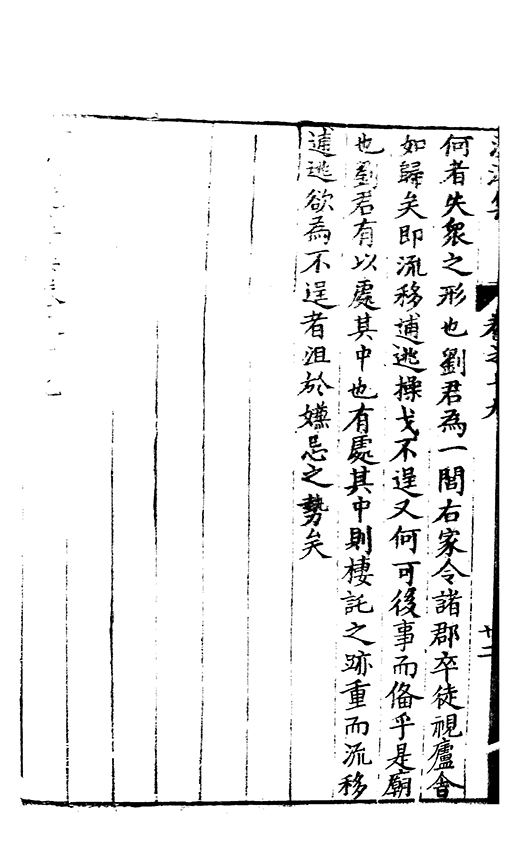 何者失衆之形也劉君為一閭右家令諸郡卒徒視廬舍
如歸矣即流移逋逃操戈不逞又何可後事而備乎是廟
也劉君有以處其中也有處其中則棲託之跡重而流移
逋逃欲為不逞者沮於嫌忌之勢矣
卷之十九
廿二